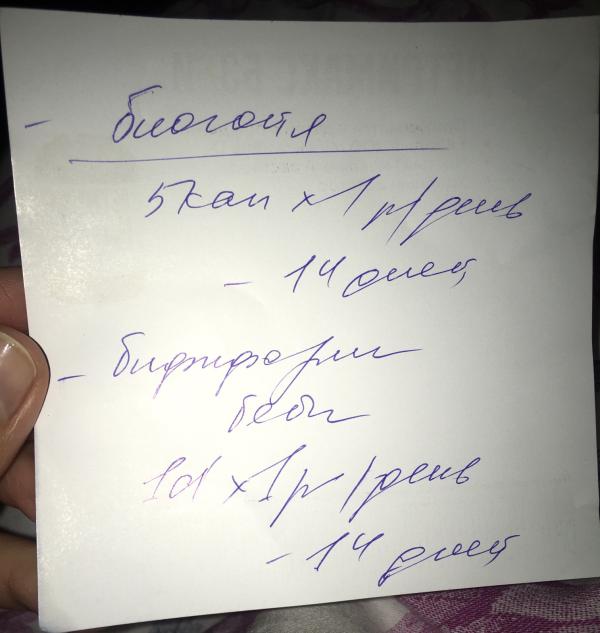 - биогайя
5 кап x 1 р/день
- 14 дней
- бифиформ
беби
1d x 1 р/день
- 14 дней